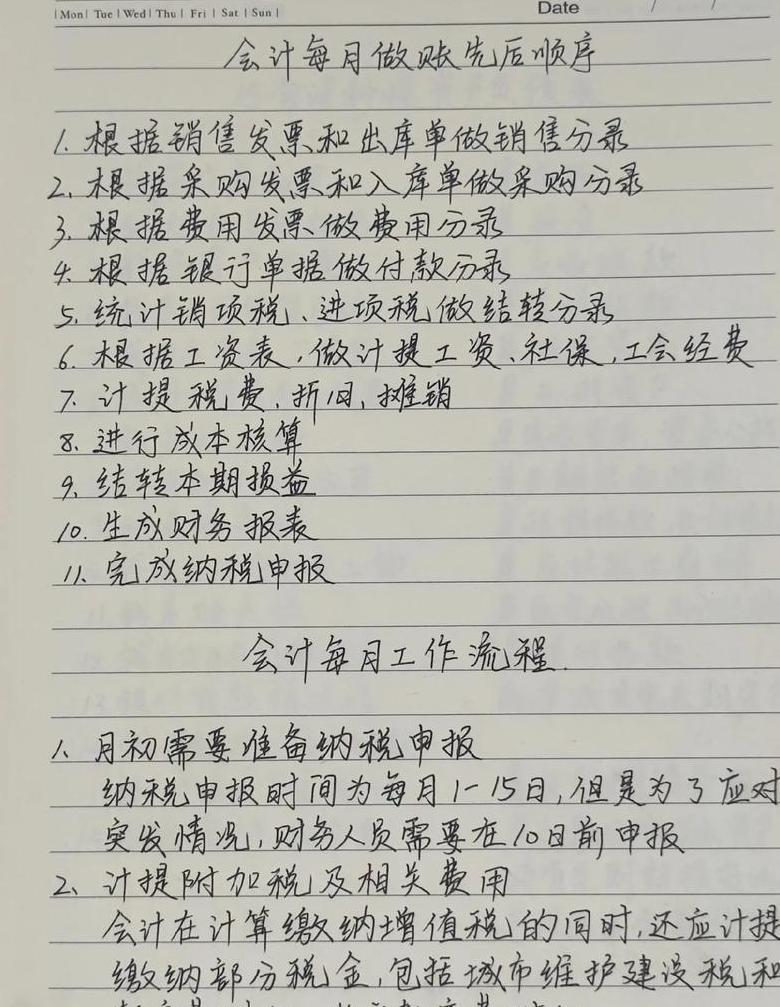 Mon Tue Wed Thu Fri Sat Sun Date / /
会计每月做账先后顺序
1. 根据销售发票和出库单做销售分录
2. 根据采购发票和入库单做采购分录
3. 根据费用发票做费用分录
4. 根据银行单据做付款分录
5. 统计销项税、进项税做结转分录
6. 根据工资表,做计提工资、社保,工会经费
7. 计提税费、折旧、摊销
8. 进行成本核算
9. 结转本期损益
10. 生成财务报表
11. 完成纳税申报
会计每月工作流程.
1、月初需要准备纳税申报
纳税申报时间为每月1-15日,但是为了应对
突发情况,财务人员需要在10日前申报
2、计提附加税及相关费用
会计在计算缴纳增值税的同时,还应计提
缴纳部分税金,包括城市维护建设税和